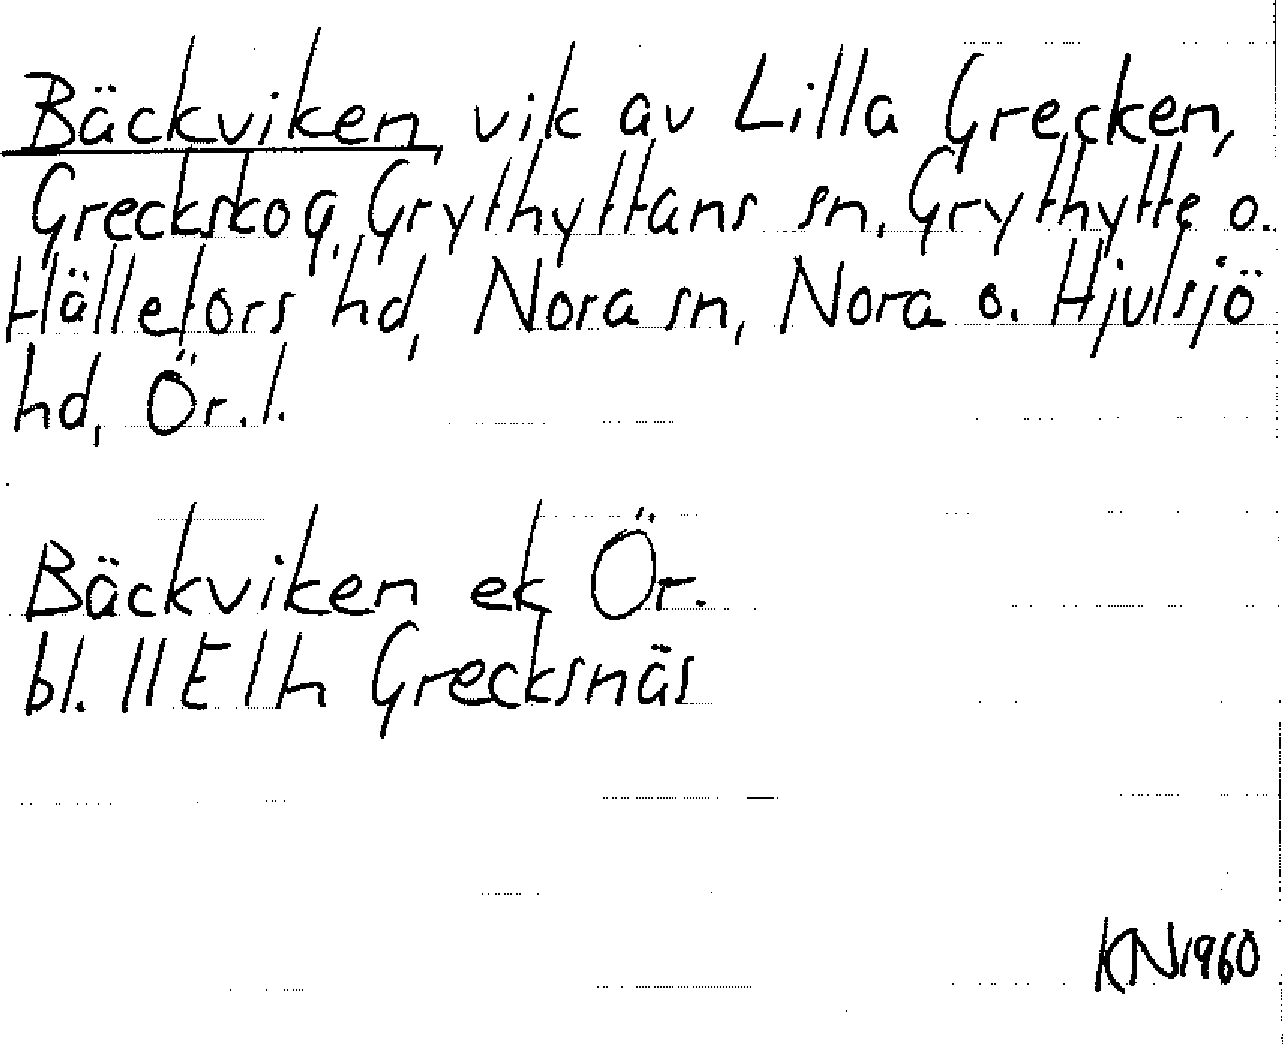 Bäckviken, vik av Lilla Grecken,
Greckskog, Grythyttans sn, Grythytte o.
Hällefors hd, Nora sn, Nora o. Hjulsjö
hd, Ör. l.
Bäckviken ek Ör.
bl. 11 E 1 h Grecksnäs
KN 1960